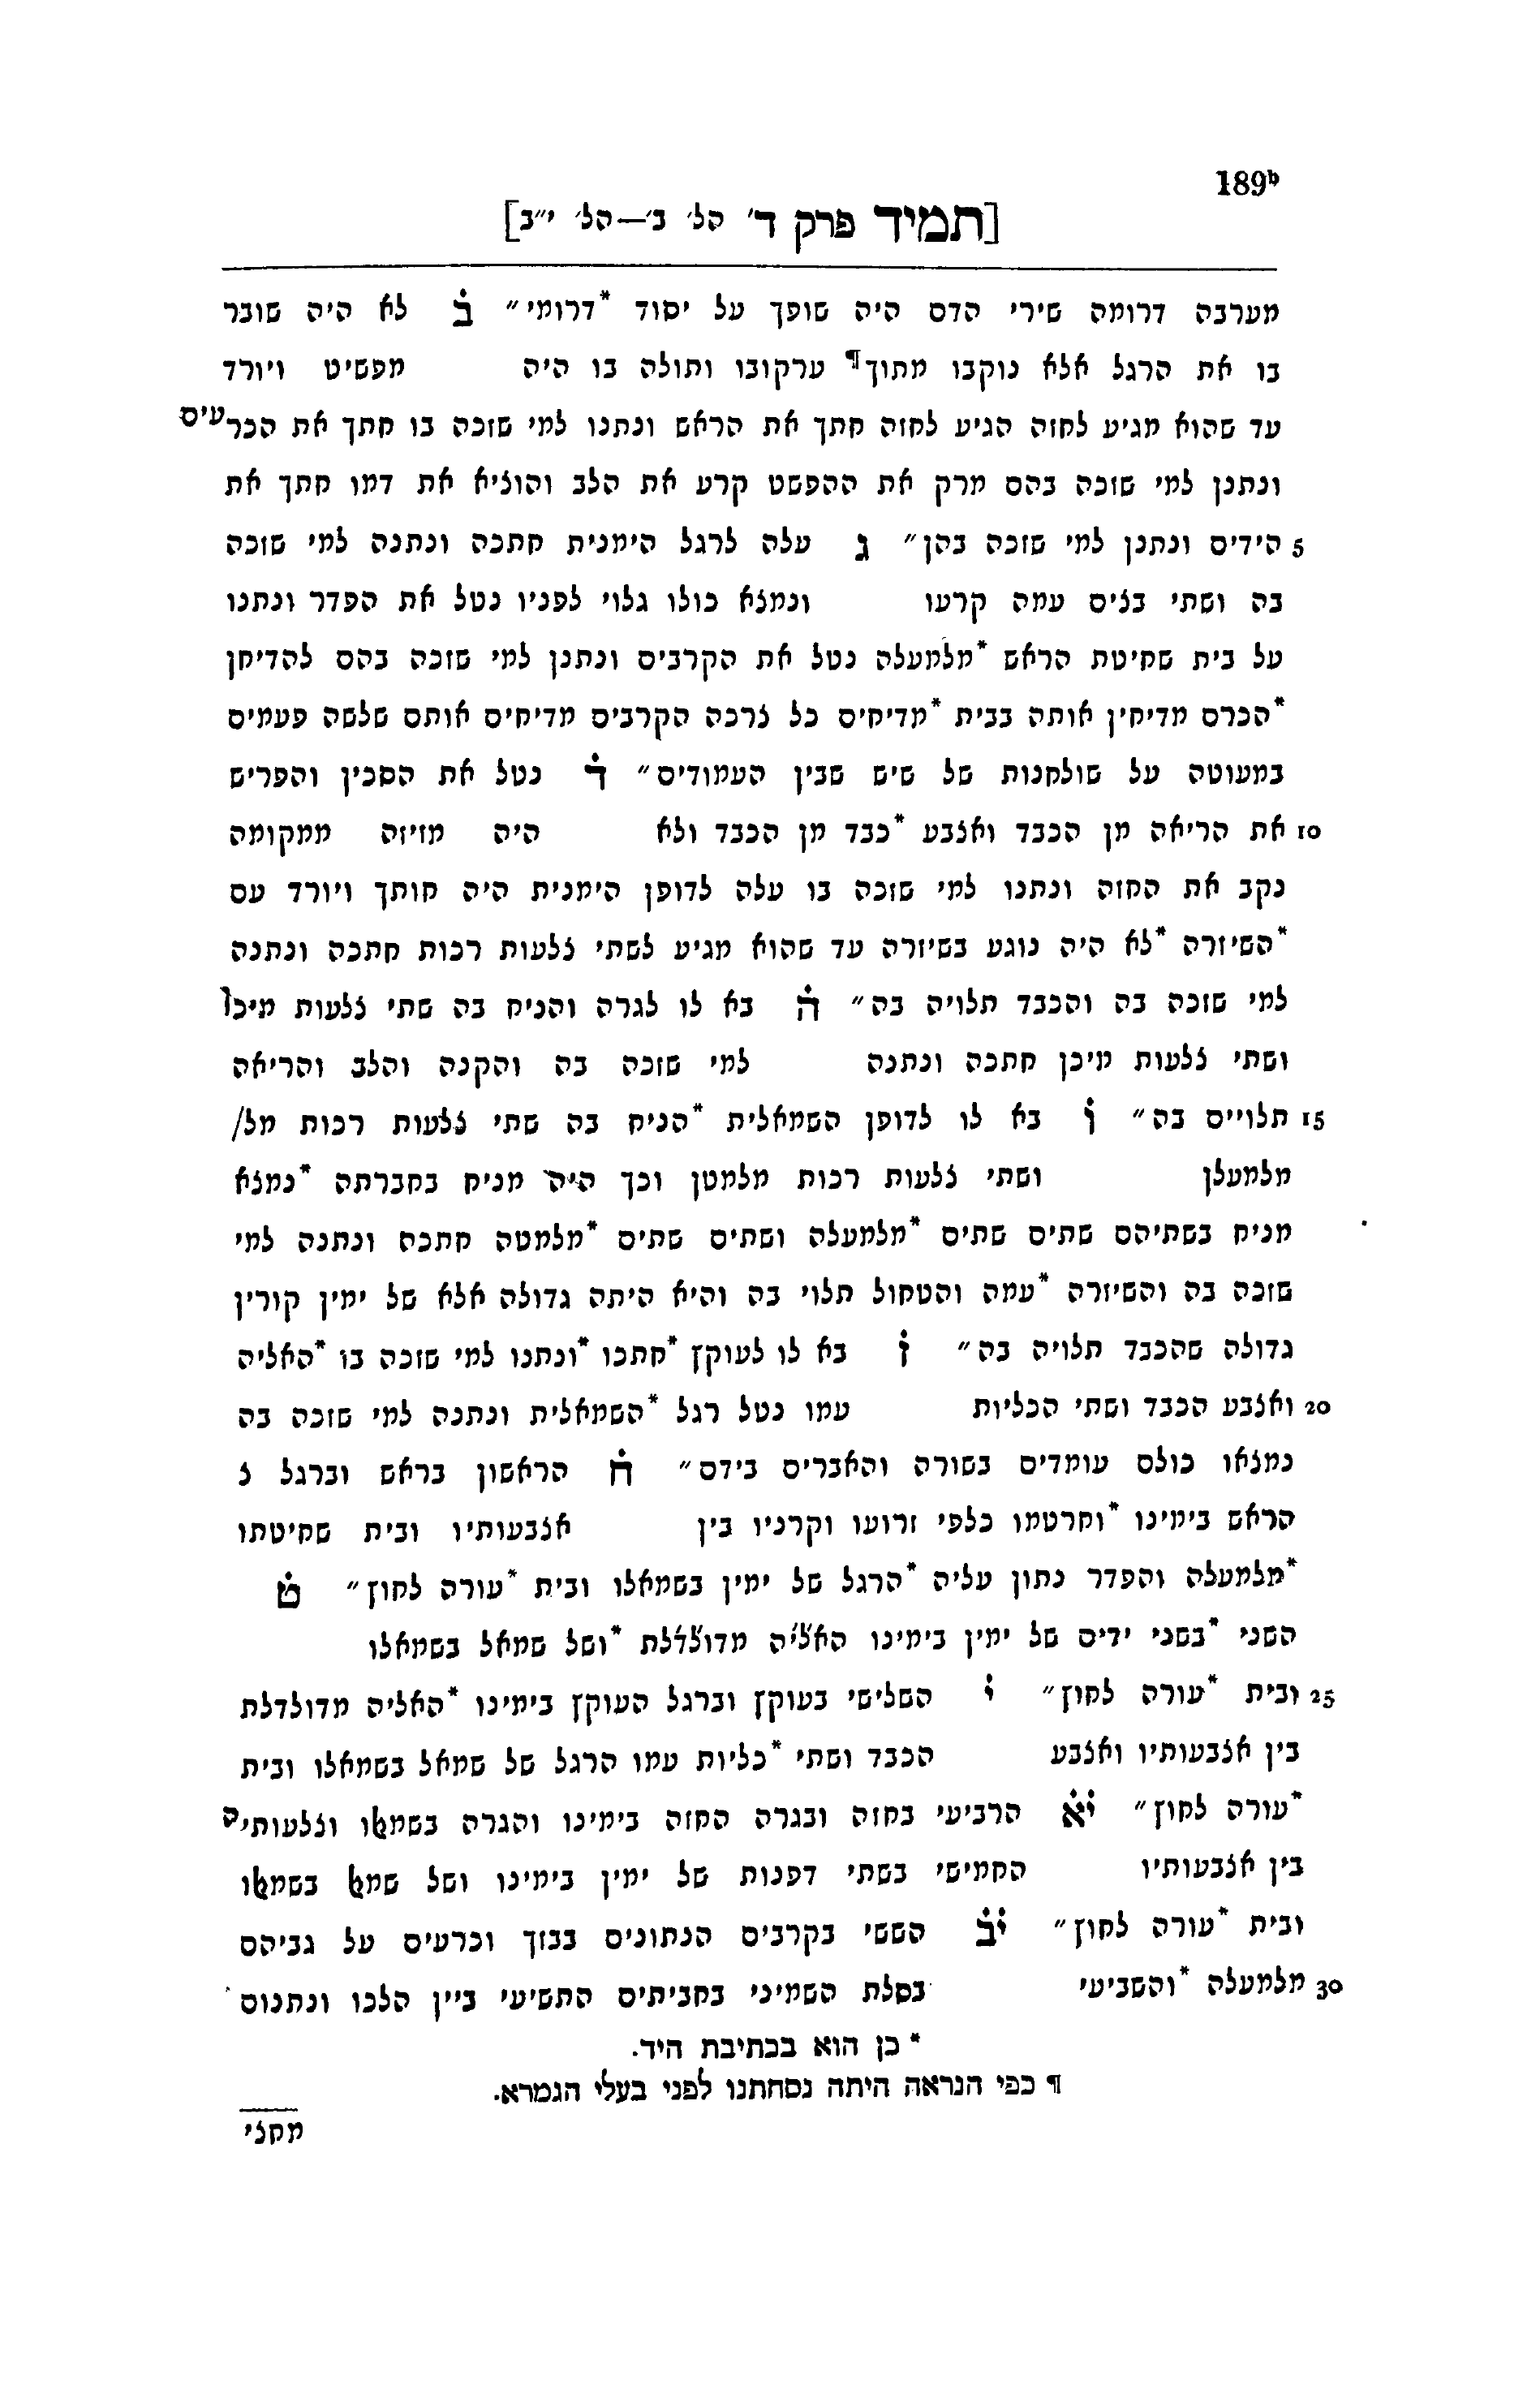 189b
[תמיד פרק ד׳ הל׳ ב׳—הל׳ י״ב]
מערבה דרומה שירי הדם היה שופך על יסוד *דרומי״ ב לא היה שובר
בו את הרגל אלא נוקבו מתוך¶ ערקובו ותולה בו היה מפשיט ויורד
עד שהוא מגיע לחזה הגיע לחזה חתך את הראש ונתנו למי שזכה בו חתך את הכרעים
ונתנן למי שזכה בהם מרק את ההפשט קרע את הלב והוציא את דמו חתך את
5 הידים ונתנן למי שזכה בהן״ ג עלה לרגל הימנית חתכה ונתנה למי שזכה
בה ושתי בצים עמה קרעו ונמצא כולו גלוי לפניו נטל את הפדר ונתנו
על בית שחיטת הראש *מלמעלה נטל את הקרבים ונתנן למי שזכה בהם להדיחן
*הכרס מדיחין אותה בבית *מדיחים כל צרכה הקרבים מדיחים אותם שלשה פעמים
במעוטה על שולחנות של שיש שבין העמודים״ ד נטל את הסכין והפריש
10 את הריאה מן הכבד ואצבע *כבד מן הכבד ולא היה מזיזה ממקומה
נקב את החזה ונתנו למי שזכה בו עלה לדופן הימנית היה חותך ויורד עם
*השיזרה *לא היה נוגע בשיזרה עד שהוא מגיע לשתי צלעות רכות חתכה ונתנה
למי שזכה בה והכבד תלויה בה״ ה בא לו לגרה והניח בה שתי צלעות מיכן
ושתי צלעות מיכן חתכה ונתנה למי שזכה בה והקנה והלב והריאה
15 תלויים בה״ ו בא לו לדופן השמאלית *הניח בה שתי צלעות רכות מל/
מלמעלן ושתי צלעות רכות מלמטן וכך היה מניח בחברתה *נמצא
מניח בשתיהם שתים שתים *מלמעלה ושתים שתים *מלמטה חתכה ונתנה למי
שזכה בה והשיזרה *עמה והטחול תלוי בה והיא היתה גדולה אלא של ימין קורין
גדולה שהכבד תלויה בה״ ז בא לו לעוקץ *חתכו *ונתנו למי שזכה בו *האליה
20 ואצבע הכבד ושתי הכליות עמו נטל רגל *השמאלית ונתנה למי שזכה בה
נמצאו כולם עומדים בשורה והאברים בידם״ ח הראשון בראש וברגל צ
הראש בימינו *וחרטמו כלפי זרועו וקרניו בין אצבעותיו ובית שחיטתו
*מלמעלה והפדר נתון עליה *הרגל של ימין בשמאלו ובית *עורה לחוץ״ ט
השני *בשני ידים של ימין בימינו האליה מדולדלת *ושל שמאל בשמאלו
25 ובית *עורה לחוץ״ י השלישי בעוקץ וברגל העוקץ בימינו *האליה מדולדלת
בין אצבעותיו ואצבע הכבד ושתי *כליות עמו הרגל של שמאל בשמאלו ובית
*עורה לחוץ״ יא הרביעי בחזה ובגרה החזה בימינו והגרה בשמאלו וצלעותיה
בין אצבעותיו החמישי בשתי דפנות של ימין בימינו ושל שמאל בשמאלו
ובית *עורה לחוץ״ יב הששי בקרבים הנתונים בבזך וכרעים על גביהם
30 מלמעלה *והשביעי בסלת השמיני בחביתים התשיעי ביין הלכו ונתנום
* כן הוא בכתיבת היד.
¶ כפי הנראה היתה נסחתנו לפני בעלי הגמרא.
מחצי